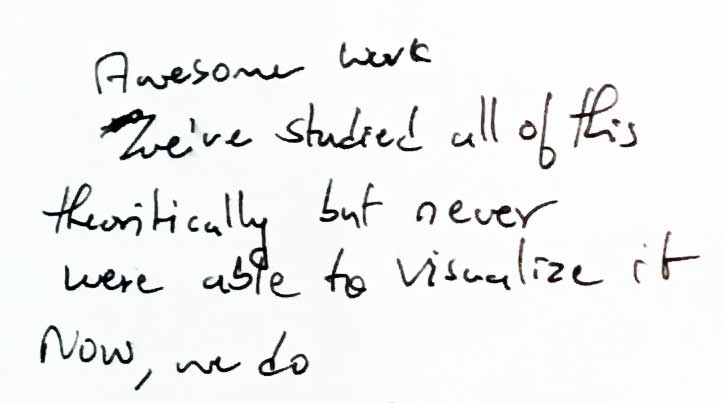 Awesome work
We've studied all of this
theoritically but never
were able to visualize it
Now, we do